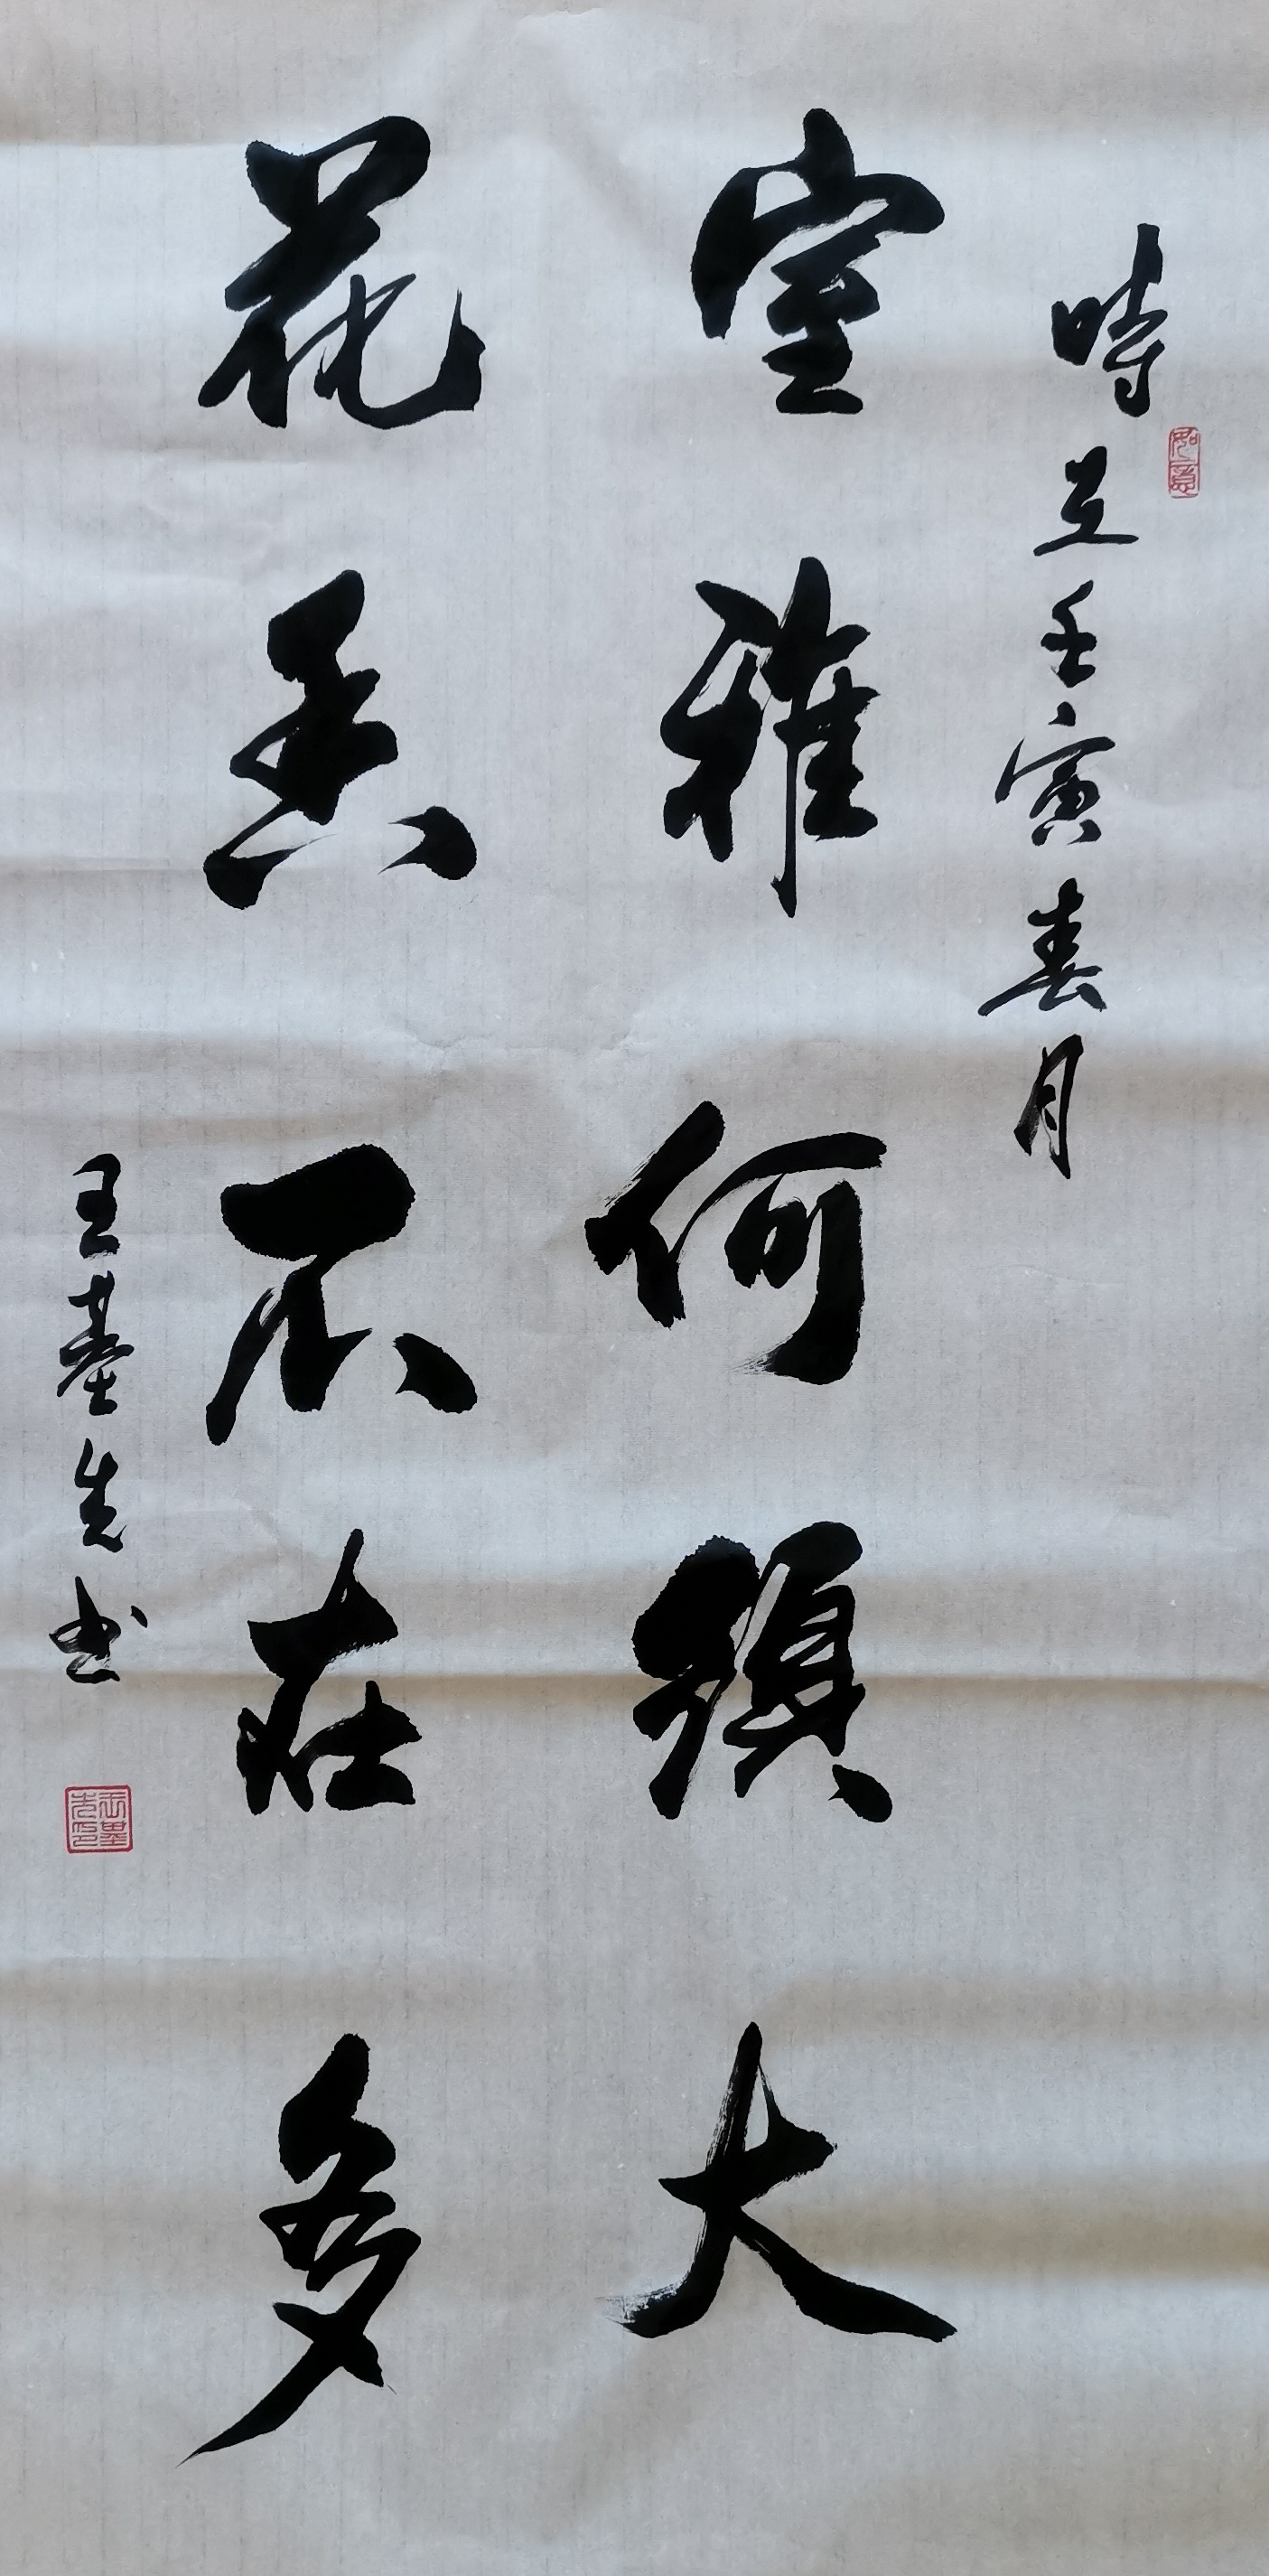 時在壬寅春月
室雅何須大
花香不在多
王基先书
如意